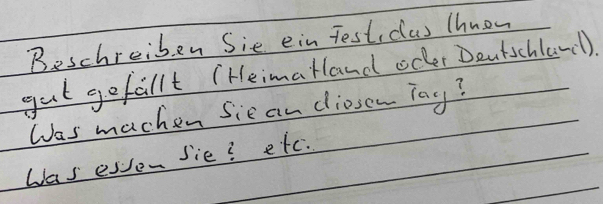 Beschreiben Sie ein Fest, das Ihnen
gut gefällt (Heimatland oder Deutschland).
Was machen Sie an diesem Tag?
Was essen Sie? etc.